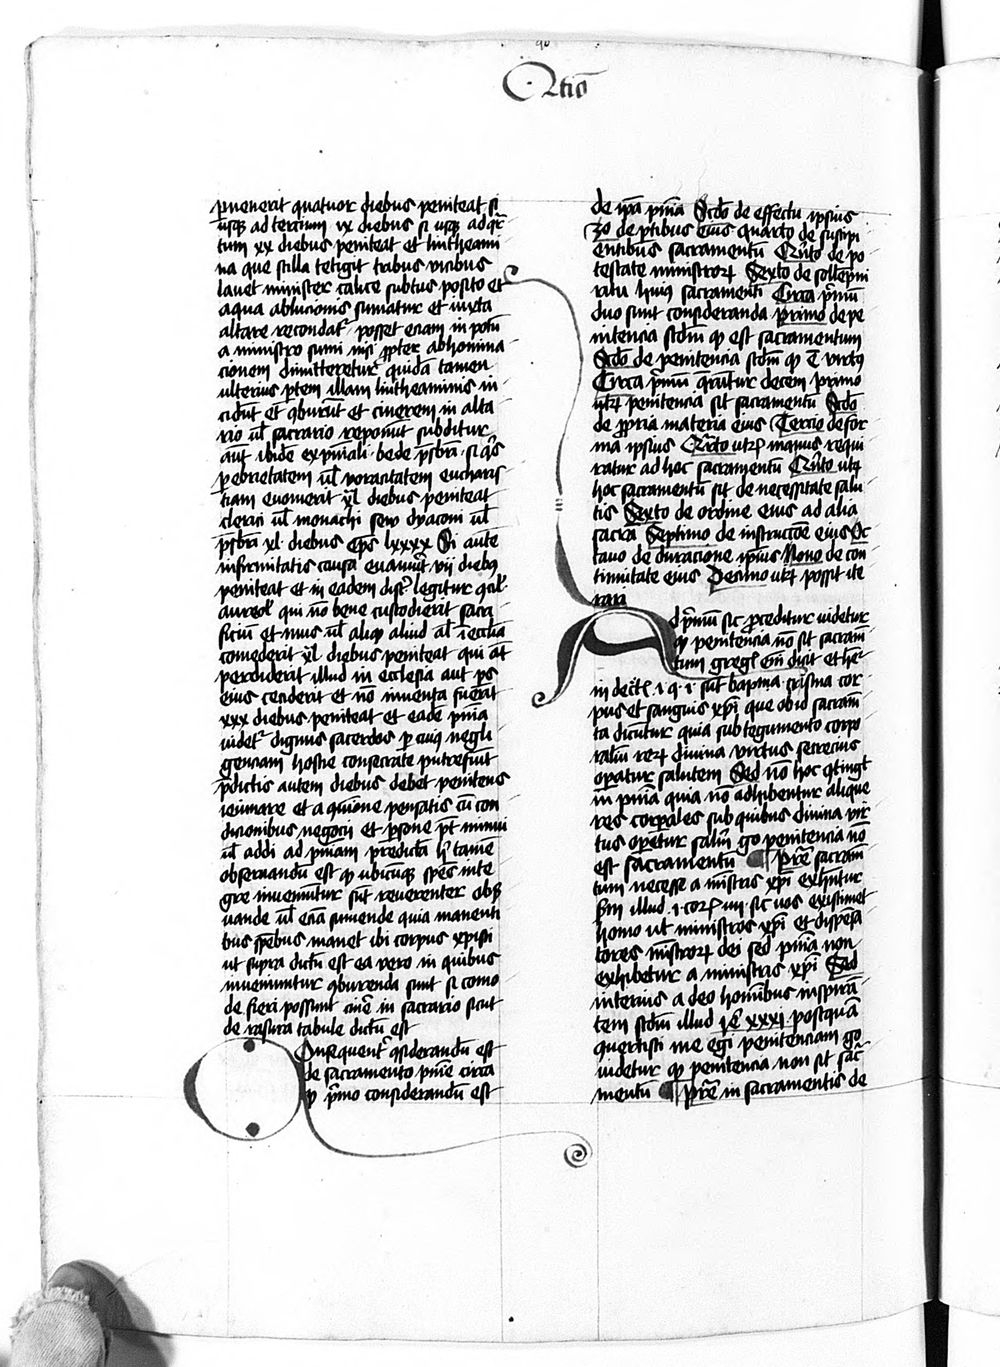 90
Qͣtio
pͥuenerit quatuor diebus peniteat si
usqꝫ ad tercium ix diebus si usqꝫ ad qͣr
tum xx diebus peniteat et lintheami
na que stilla tetigit tribus uicibus
lauet minister calice subtus posito et
aqua ablucionis sumatur et iuxta
altare recondatᷣ posset etiam in potū
a ministro sumi nisi ꝓpter abhomina
cionem dimitteretur quidā tamen
ulterius ꝑtem illam lintheaminis in
cidūt et ꝯburūt et cinerem in alta
rio ul̄ sacrario reponūt subditur
aūt ibidē ex pn̄iali bede p̄sbrī si qͥs
ꝑ ebrietatem ul̄ uoracitatem eucharis
tiam euomerit xl diebus peniteat
clerici ul̄ monachi seu dyaconi ul̄
p̄sbrī xl diebus ep̄s lxxxx Si aute
infirmitatis causa euomuͥt vii diebꝫ
peniteat et in eadem distᷣ legitur
qui nō bene custodierit sacri
ficiū et mus ul̄ aliqͦ aliud aīal ī ecclīa
comederit xl diebus peniteat qui aūt
perdiderit illud in ecclesia aut ps
eius ceciderit et nō inuenta fuerit
xxx diebus peniteat et eadē pn̄ia
uidetᷣ dignus sacerdos ꝑ cuiꝰ negli
genciam hostie consecrate putrefiūt
p̄dictis autem diebus debet penitens
ieiunare et a ꝯmūione pensatis cū con
dicionibus negocii et ꝑsone pn̄t minui
ul̄ addi ad pn̄iam predictā hͦ tamē
obseruandū est qͦ ubicūqꝫ spēs inte
gre inueniūtur sūt reuerenter obẜ
uande ul̄ etiā sumende quia manenti
bus spēbus manet ibi corpus xpisti
ut supra dictū est ea vero in quibus
inueniuntur ꝯburenda sunt si como
de fieri possunt cinē in sacrario sicut
de rasura tabule dictū est
Onsequentᷣ ꝯsiderandū est
de sacramento pn̄ie circa
qͦ pͥmo considerandū est
de ip̄a pn̄ia Scd̄o de effectu ipsius
3o de ꝑtibus eius quarto de suscipi
entibus sacramentū Qͥnto de po
testate ministroꝝ Sexto de sollempni
ritu huiꝰ sacramenti Circa pͥmū
duo sunt consideranda primo de pe
nitencia scd̄m qͦ est sacramentum
Scd̄o de penitencia scd̄m qͦ ē virtꝰ
Circa pͥmū qͣrūtur decem primo
utꝝ penitencia sit sacramentū Scd̄o
de ꝓpria materia eius Tercio de for
ma ipsius Qͣrto utꝝ manus requi
ratur ad hoc sacramentū Qͥnto utꝝ
hoc sacramentū sit de necessitate salu
tis Sexto de ordine eius ad alia
sacra Septimo de institucōe eius Oc
tauo de duracione ipsius Nono de con
tinuitate eius Decimo utꝝ possit ite
rari
Ad pͥmū sic proceditur uidetur
qͦ penitencia nō sit sacram̄
tum gregꝰ em̄ dicit et hētᷣ
in decre͛ i q i sūt baptīa crisma cor
pus et sanguis xpī que ob id sacram̄
ta dicūtur quia sub tegumento corpo
raliū rerꝝ diuina virtus secrecius
operatur salutem Sed nō hoc ꝯtingit
in pn̄ia quia nō adhibentur alique
res corporales sub quibus diuina vir
tus operetur salutē gͦ penitencia nō
est sacramentū ¶ p̄re sacram̄
tum necesse a mīstris xpī exhibetur
scd̄m illud i coꝝ iiii sic uos existimet
homo ut ministros xpī et dispēsa
tores mīstroꝝ dei sed pn̄ia non
exhibetur a ministris xpī Sed
interius a deo hominibus inspirā
tem scd̄m illud Ie xxxi postquā
quertisti me egi penitenciam gͦ
uidetur qͦ penitencia non sit sacͣ
mentū ¶ p̄re in sacramentis de